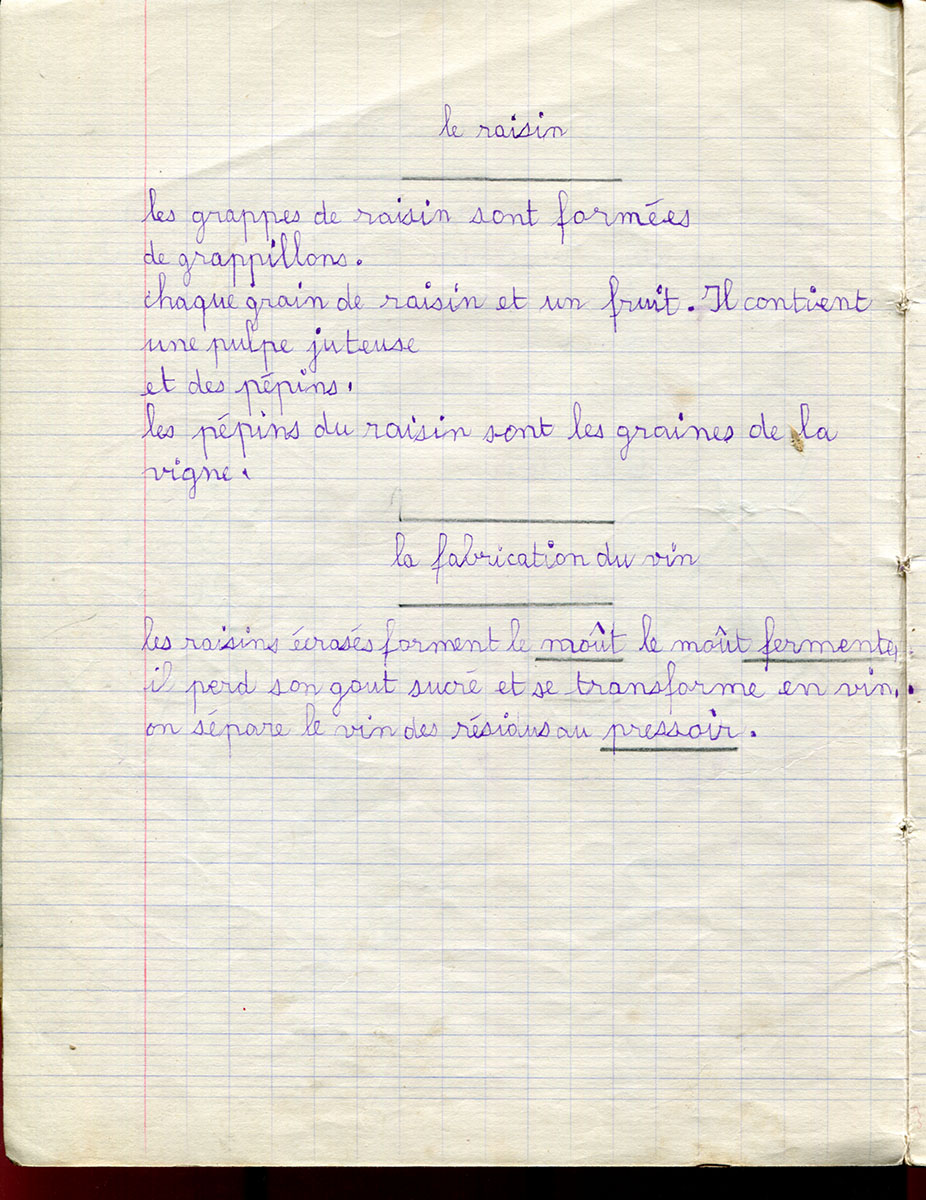 le raisin
les grappes de raisin sont formées
de grappillons.
chaque grain de raisin et un fruit. Il contient
une pulpe juteuse
et des pépins.
les pépins du raisin sont les graines de la
vigne.
la fabrication du vin
les raisins écrasés forment le moût le moût fermente,
il perd son gout sucré et se transforme en vin.
on sépare le vin des résidus au pressoir.